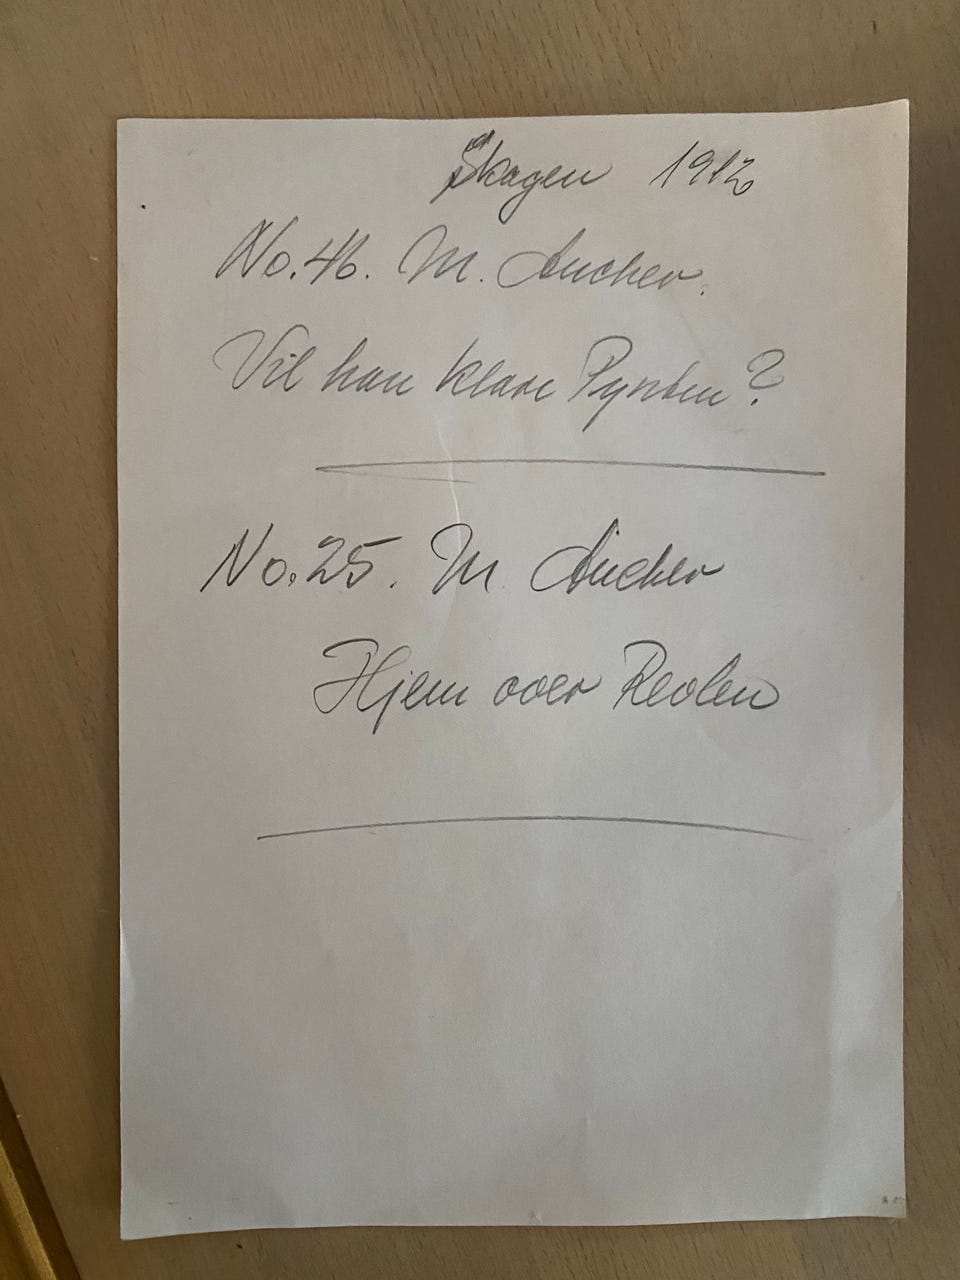 Skagen 1912
No. 46. M. Ancher.
Vil han klare Pynten?
No. 25. M. Ancher
Hjem over Revlen